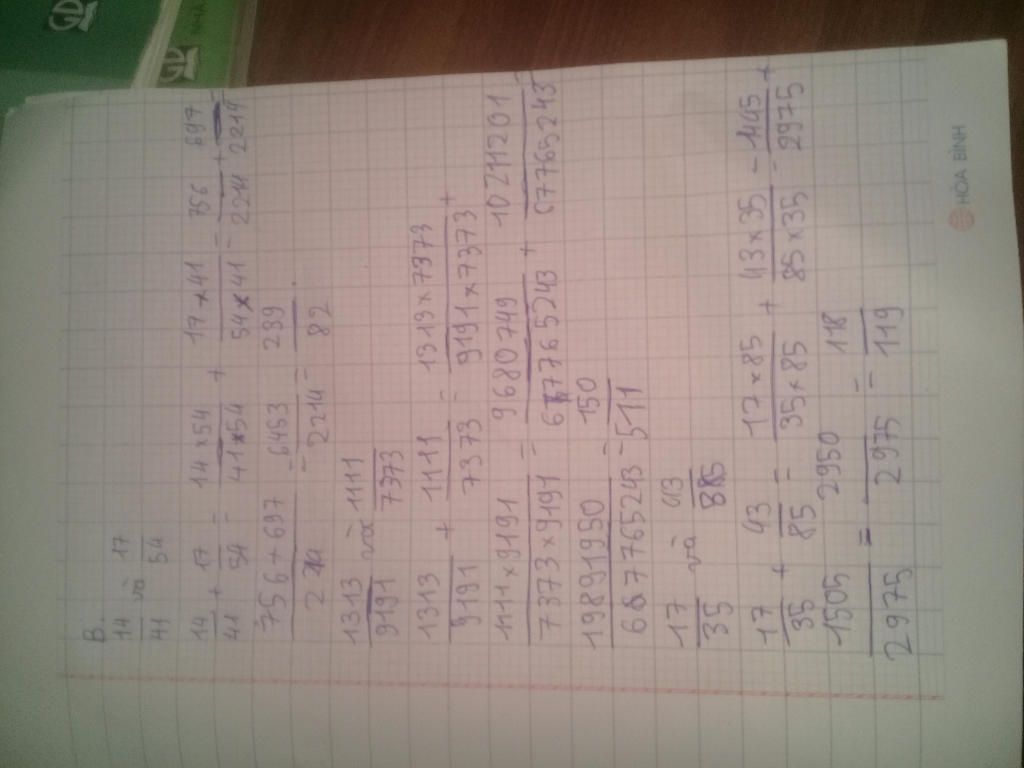 B.
14/41 và 17/54
14/41 + 17/54 = 14 x 54/41 x 54 + 17 x 41/54 x 41 = 756/2214 + 697/2214
756 + 697/2214 = 6453/2214 = 239/82
1313/9191 và 1111/7373
1313/9191 + 1111/7373 = 1313 x 7373/9191 x 7373 +
1111 x 9191/7373 x 9191 = 9680749/67765243 + 10211201/67765243
19891950/67765243 = 150/511
17/35 và 43/85
17/35 + 43/85 = 17 x 85/35 x 85 + 43 x 35/85 x 35 = 1445/2975 +
1505/2975 = 2950/2975 = 118/119
HÒA BÌNH
GD
GD
NHÀ